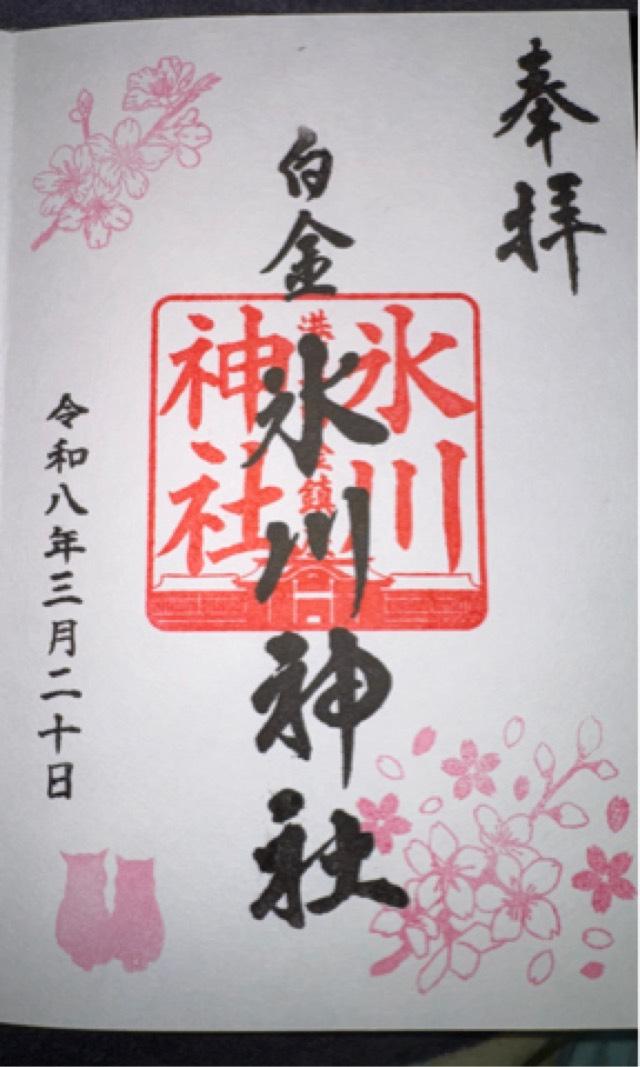 奉拝
白金
氷川神社
氷川
神社
令和八年三月二十日